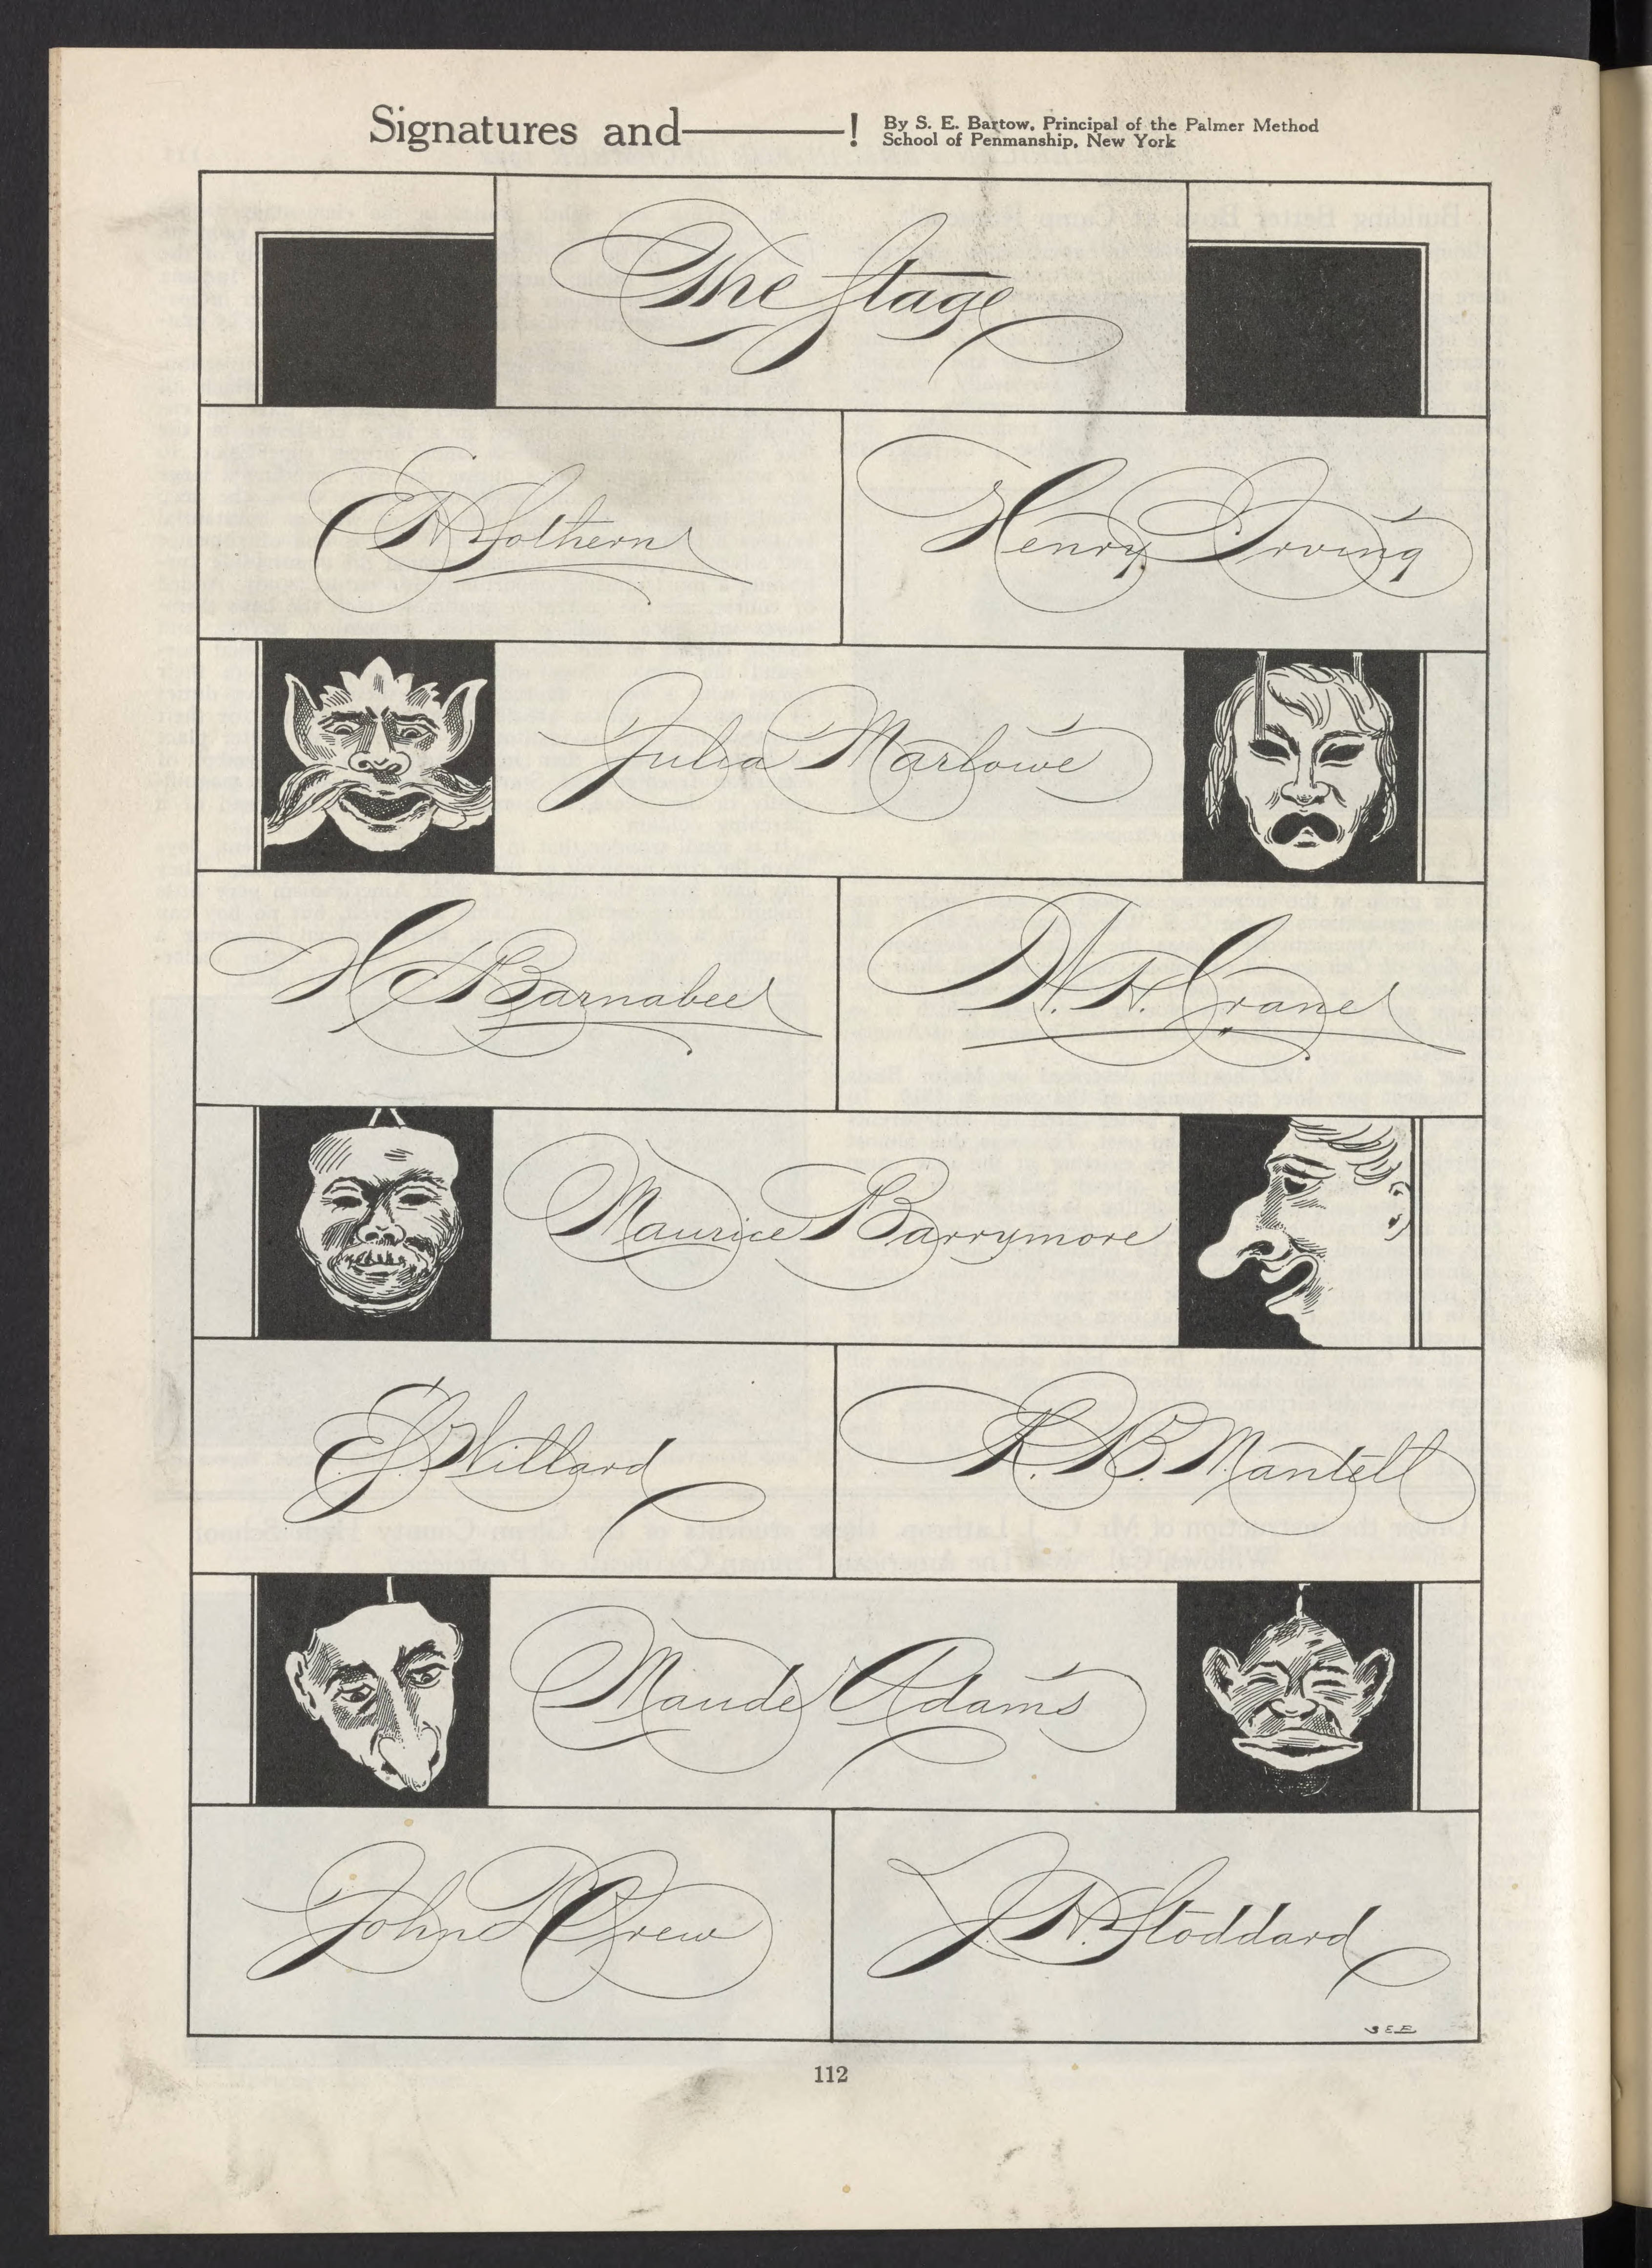 Signatures and————!
By S. E. Bartow, Principal of the Palmer Method
School of Penmanship, New York
The Stage
E H Sothern
Henry Irving
Julia Marlowe
H C Barnabee
W. H. Crane
Maurice Barrymore
E. S. Willard
R. B. Mantell
Maude Adams
John Drew
J. H. Stoddard
SEB
112